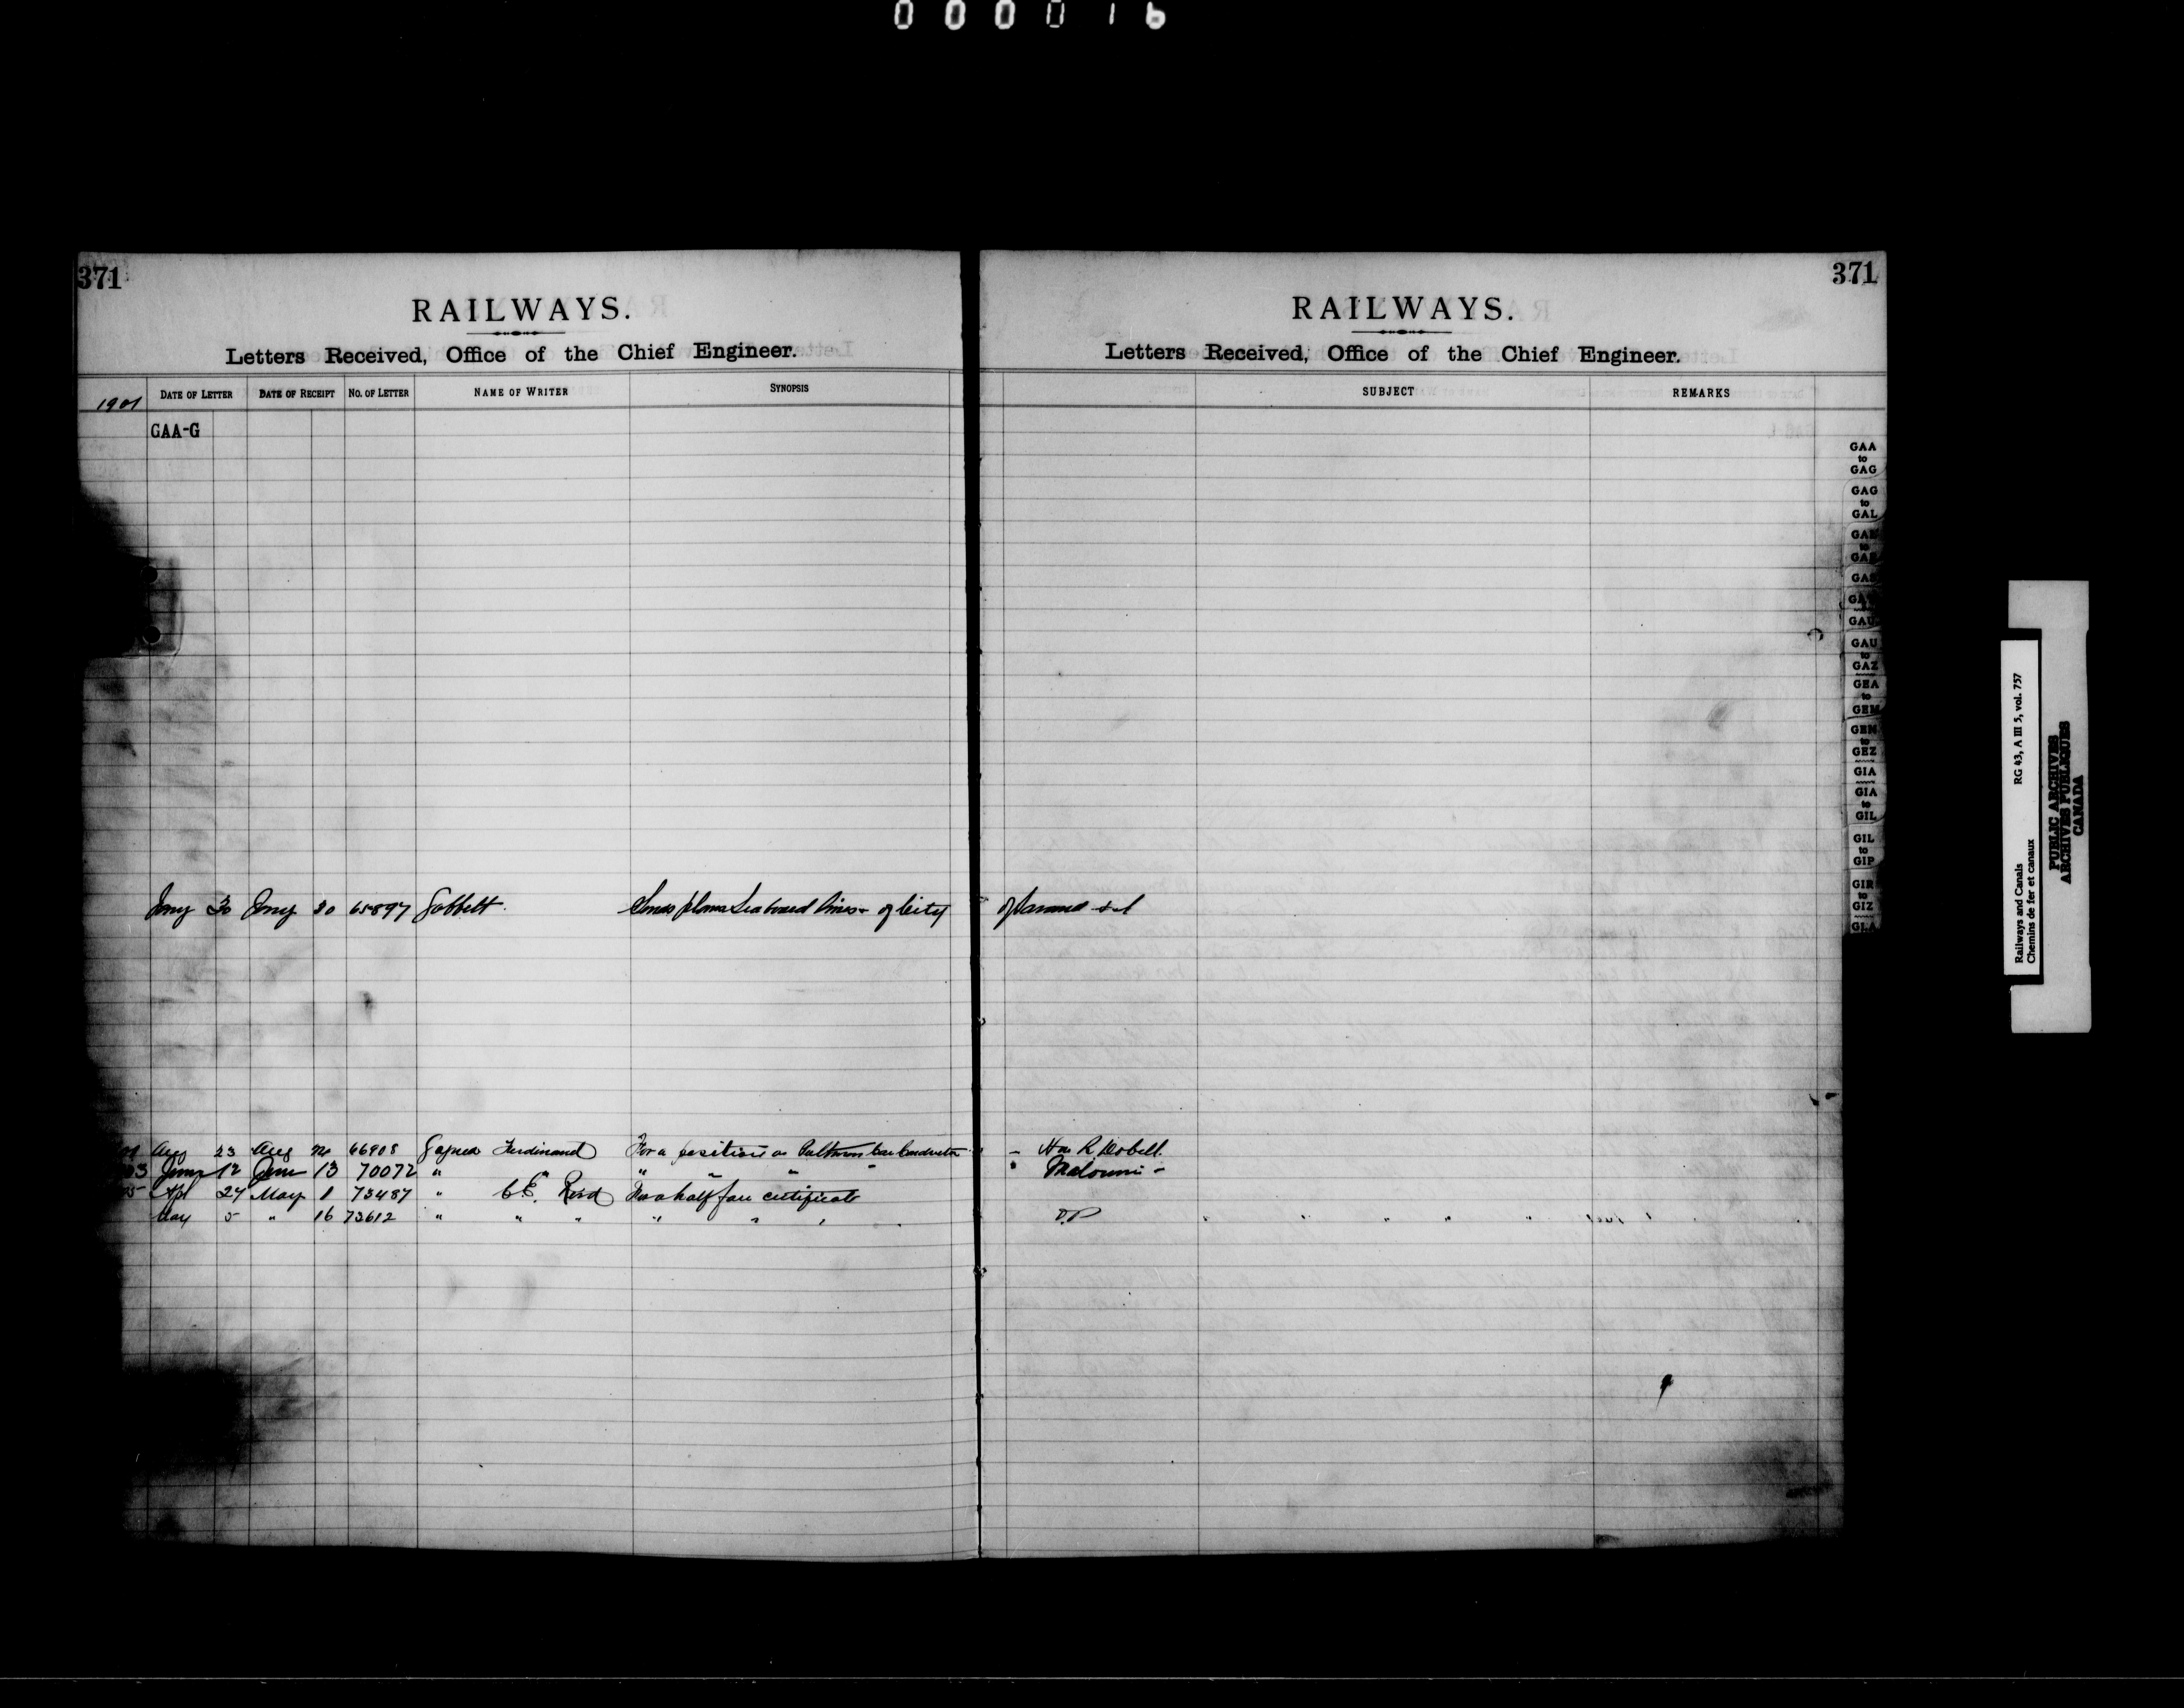 000016
371
RAILWAYS.
Letters Received, Office of the Chief Engineer.
1901 DATE OF LETTER DATE OF RECEIPT NO. OF LETTER NAME OF WRITER SYNOPSIS
GAA-G
Jany 30 Jany 30 65897 Gobbelt. Sends plans Seaboard lines of City
01 Aug 23 Aug 24 66908 Gagnea Ferdinand For a position as Pullman Car Conductor
03 June 12 June 13 70072 " " " " " "
05 Apl 27 May 1 73487 " C.E. Reid For a half fare certificate
May 5 " 16 73612 " " " " " " "
371
RAILWAYS.
Letters Received, Office of the Chief Engineer.
SUBJECT REMARKS
of
- Hon R. Dobell.
" Malouni -
D.P " " " " "
GAA
to
GAG
GAG
to
GAL
GAS
GAU
GAU
to
GAZ
GEA
to
GEM
GEN
to
GEZ
GIA
GIA
to
GIL
GIL
to
GIP
GIR
to
GIZ
GLA
Railways and Canals RG 43, A III 5, vol. 757
Chemins de fer et canaux
PUBLIC ARCHIVES
ARCHIVES PUBLIQUES
CANADA